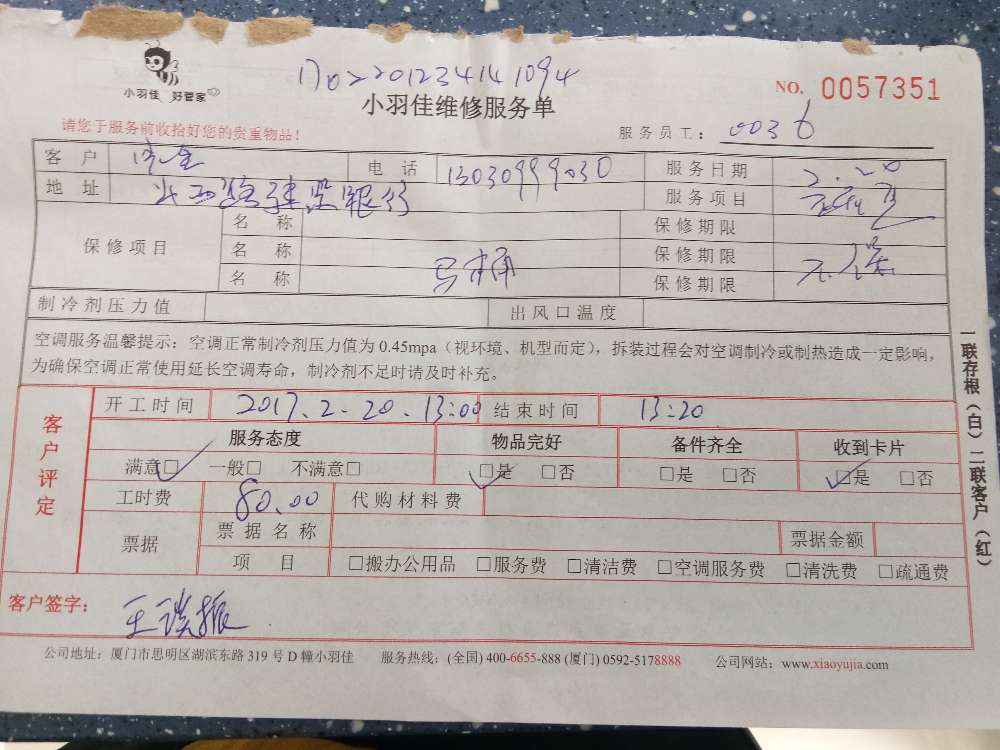 小羽佳 好管家
1702201234141094
小羽佳维修服务单
NO. 0057351
请您于服务前收拾好您的贵重物品！
服务员工： 0036
客户 电话 13030999030 服务日期 2.20
地址 银行 服务项目
保修项目 名称 保修期限
名称 马桶 保修期限 不保
名称 保修期限
制冷剂压力值 出风口温度
空调服务温馨提示：空调正常制冷剂压力值为0.45mpa（视环境、机型而定），拆装过程会对空调制冷或制热造成一定影响，
为确保空调正常使用延长空调寿命，制冷剂不足时请及时补充。
客户评定
开工时间 2017.2.20.13:00 结束时间 13:20
服务态度 物品完好 备件齐全 收到卡片
满意□ 一般□ 不满意□ □是 □否 □是 □否 □是 □否
工时费 80.00 代购材料费
票据 票据名称 票据金额
项目 □搬办公用品 □服务费 □清洁费 □空调服务费 □清洗费 □疏通费
客户签字：
公司地址：厦门市思明区湖滨东路319号D幢小羽佳 服务热线：(全国) 400-6655-888 (厦门) 0592-5178888 公司网站：www.xiaoyujia.com
一联存根（白）二联客户（红）